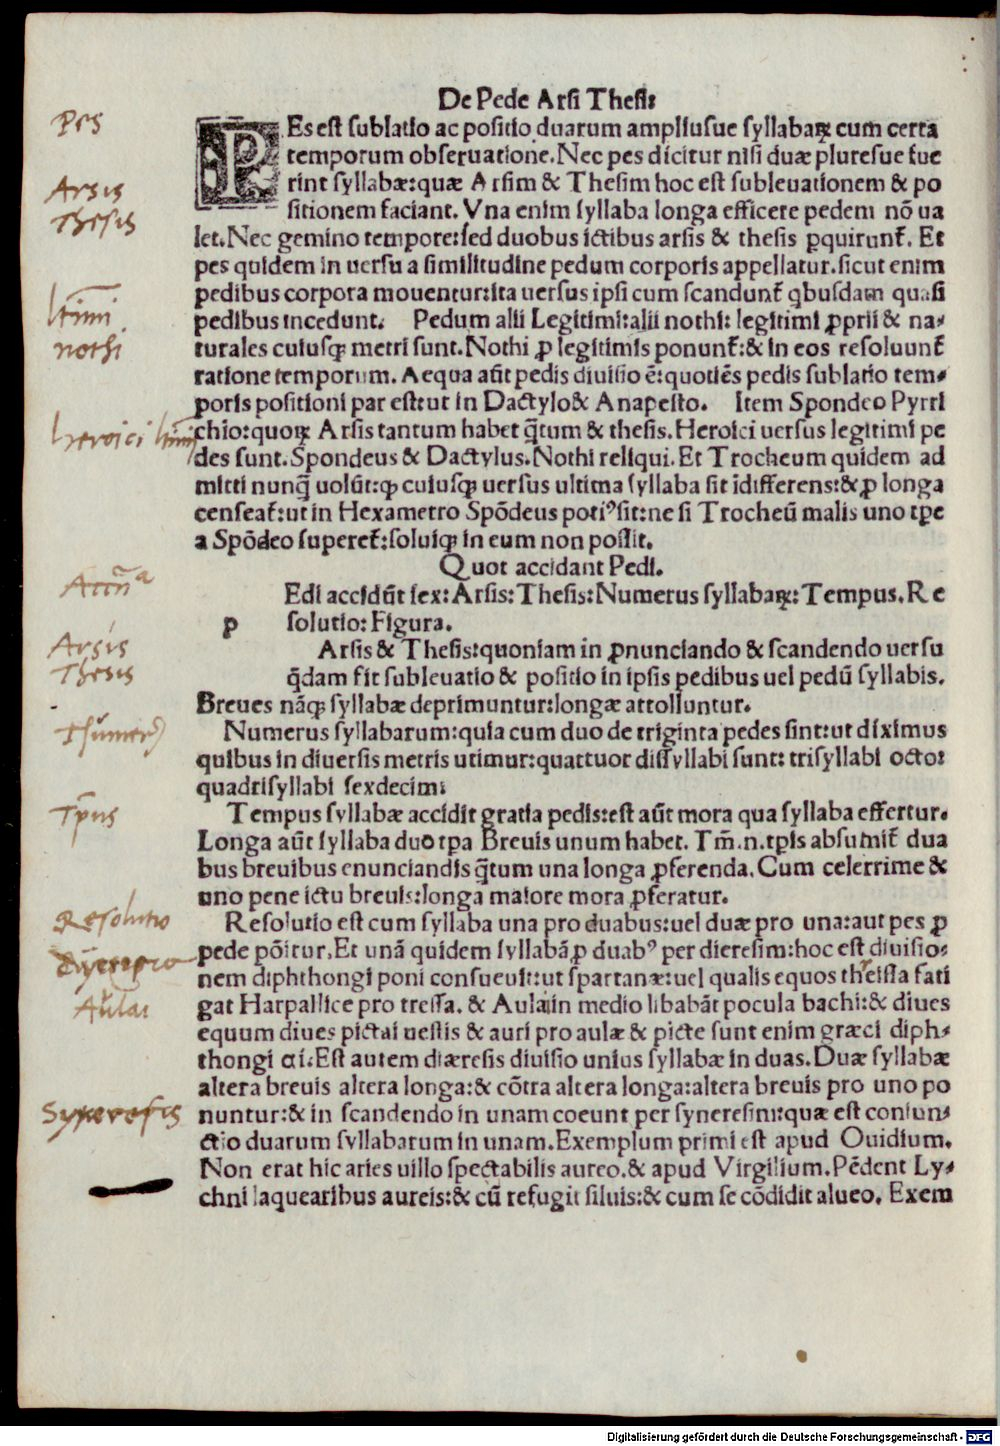 De Pede Arsi Thesi:
Pes
PEs est sublatio ac positio duarum ampliusue syllabaꝝ cum certa
temporum obseruatione. Nec pes dicitur nisi duæ pluresue fue
Arsis
rint syllabæ: quæ Arsim & Thesim hoc est subleuationem & po
Thesis
sitionem faciant. Vna enim syllaba longa efficere pedem nō ua
let. Nec gemino tempore: sed duobus ictibus arsis & thesis ꝑquirunt᷑. Et
pes quidem in uersu a similitudine pedum corporis appellatur. sicut enim
pedibus corpora mouentur: ita uersus ipsi cum scandunt᷑ q̇busdam quasi
ltimi
pedibus incedunt. Pedum alii Legitimi: alii nothi: legitimi ꝓprii & na-
nothi
turales cuiusqꝫ metri sunt. Nothi ꝓ legitimis ponunt᷑: & in eos resoluunt᷑
ratione temporum. Aequa aūt pedis diuisio ē: quotiēs pedis sublatio tem-
poris positioni par est: ut in Dactylo & Anapesto. Item Spondeo Pyrri
heroici ltimi
chio: quoꝝ Arsis tantum habet q̄tum & thesis. Heroici uersus legitimi pe
des sunt. Spondeus & Dactylus. Nothi reliqui. Et Trocheum quidem ad
mitti nunq̄ uolūt: qꝫ cuiusqꝫ uersus ultima syllaba sit īdifferens: & ꝓ longa
censeat᷑: ut in Hexametro Spōdeus potiꝰ sit: ne si Trocheū malis uno tpe
a Spōdeo superet᷑: soluiqꝫ in eum non possit.
Quot accidant Pedi.
Accñᵃ
Edi accidūt sex: Arsis: Thesis: Numerus syllabaꝝ: Tempus. Re
p solutio: Figura.
Arsis
Arsis & Thesis: quoniam in ꝓnunciando & scandendo uersu
Thesis
q̄dam fit subleuatio & positio in ipsis pedibus uel pedū syllabis.
Breues nāqꝫ syllabæ deprimuntur: longæ attolluntur.
Numerꝰ
Numerus syllabarum: quia cum duo de triginta pedes sint: ut diximus
quibus in diuersis metris utimur: quattuor dissyllabi sunt: trisyllabi octo:
quadrisyllabi sexdecim:
Tp̄us
Tempus syllabæ accidit gratia pedis: est aūt mora qua syllaba effertur.
Longa aūt syllaba duo tpa Breuis unum habet. Tm̄.n.tpis absumit᷑ dua
bus breuibus enunciandis q̄tum una longa ꝓferenda. Cum celerrime &
uno pene ictu breuis: longa maiore mora ꝓferatur.
Resolutio
Resolutio est cum syllaba una pro duabus: uel duæ pro una: aut pes ꝓ
pede pōitur. Et unā quidem syllabā ꝓ duabꝰ per dieresim: hoc est diuisio-
nem diphthongi poni consueuit: ut spartanæ: uel qualis equos threissa fati
Aulai
gat Harpalice pro tressa. & Aulai in medio libabāt pocula bachi: & diues
equum diues pictai uestis & auri pro aulæ & picte sunt enim græci diph-
thongi αι. Est autem diæresis diuisio unius syllabæ in duas. Duæ syllabæ
altera breuis altera longa: & cōtra altera longa: altera breuis pro uno po
Syneresis
nuntur: & in scandendo in unam coeunt per syneresim: quæ est coniun-
ctio duarum syllabarum in unam. Exemplum primi est apud Ouidium.
Non erat hic aries uillo spectabilis aureo. & apud Virgilium. Pēdent Ly-
chni laquearibus aureis: & cū refugit siluis: & cum se cōdidit alueo. Exem
Digitalisierung gefördert durch die Deutsche Forschungsgemeinschaft - DFG